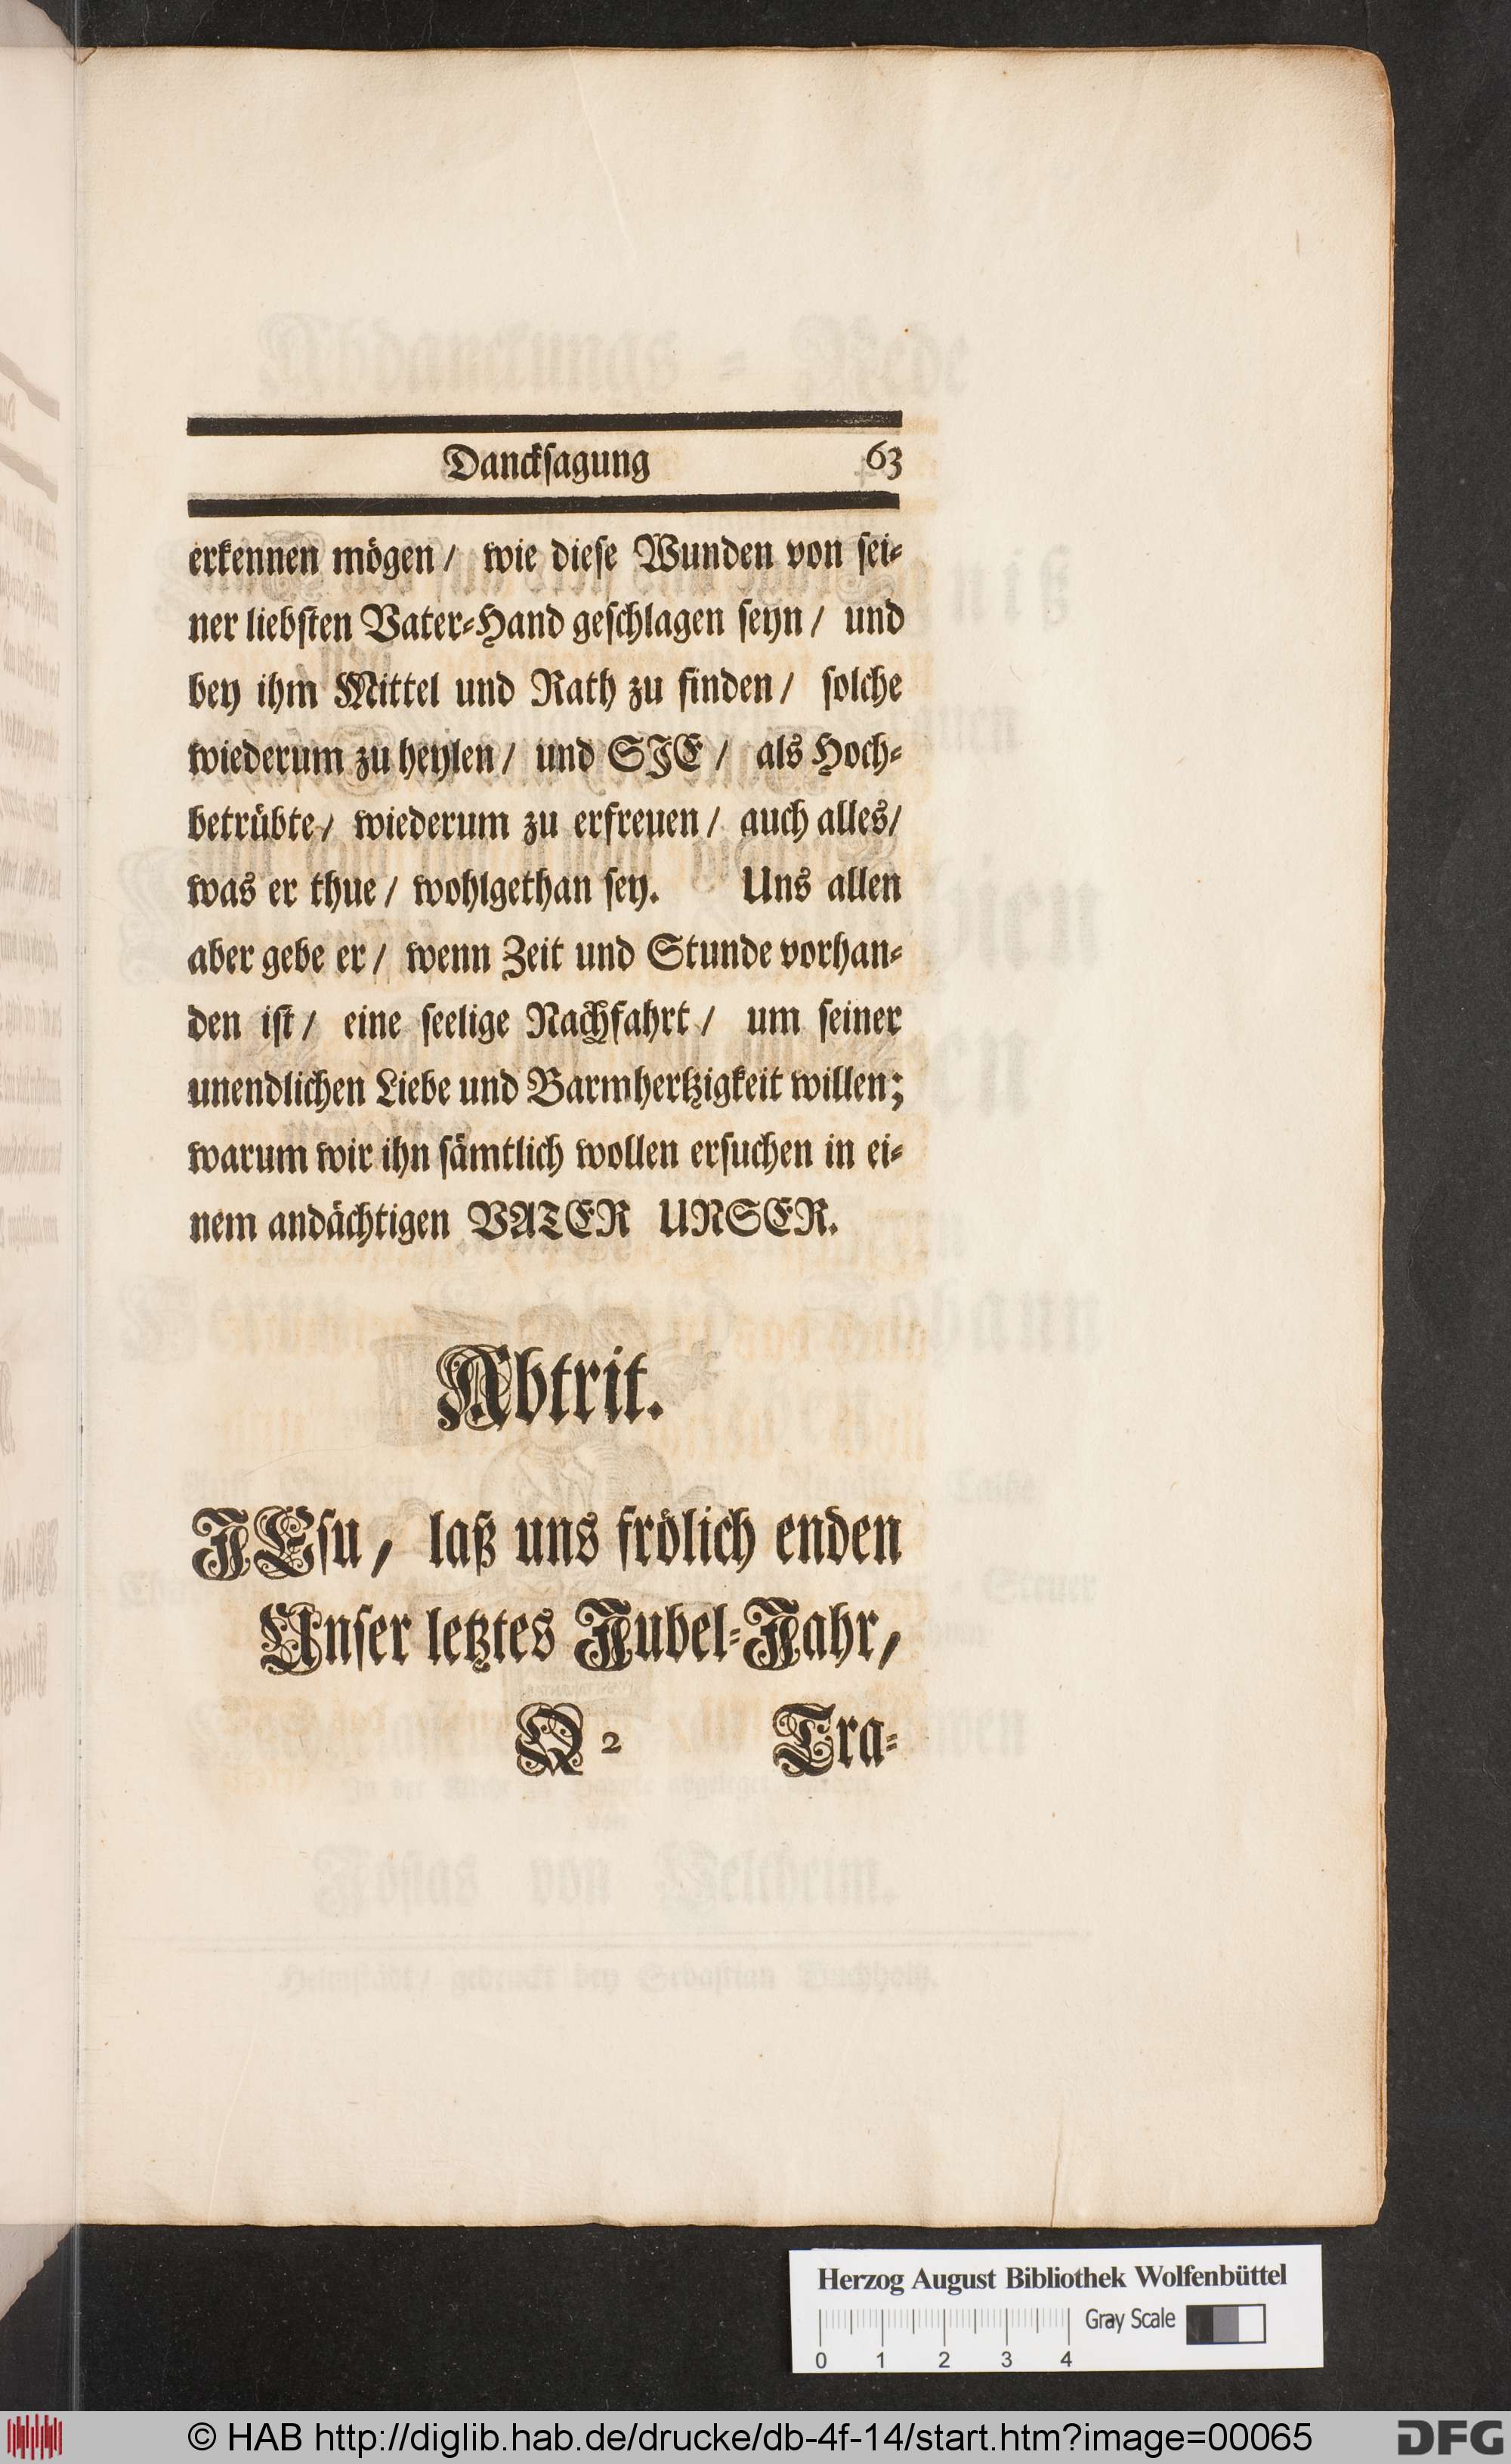 Danckſagung 63
erkennen mögen/ wie dieſe Wunden von ſei-
ner liebſten Vater-Hand geſchlagen ſeyn/ und
bey ihm Mittel und Rath zu finden/ ſolche
wiederum zu heylen/ und SJE/ als Hoch-
betrübte/ wiederum zu erfreuen/ auch alles/
was er thue/ wohlgethan ſey. Uns allen
aber gebe er/ wenn Zeit und Stunde vorhan-
den iſt/ eine ſeelige Nachfahrt/ um ſeiner
unendlichen Liebe und Barmhertzigkeit willen;
warum wir ihn ſämtlich wollen erſuchen in ei-
nem andächtigen VATER UNSER.
Abtrit.
JEſu, laß uns frölich enden
Unſer letztes Jubel-Jahr,
Q 2 Tra-
Herzog August Bibliothek Wolfenbüttel
Gray Scale
0 1 2 3 4
© HAB http://diglib.hab.de/drucke/db-4f-14/start.htm?image=00065
DFG